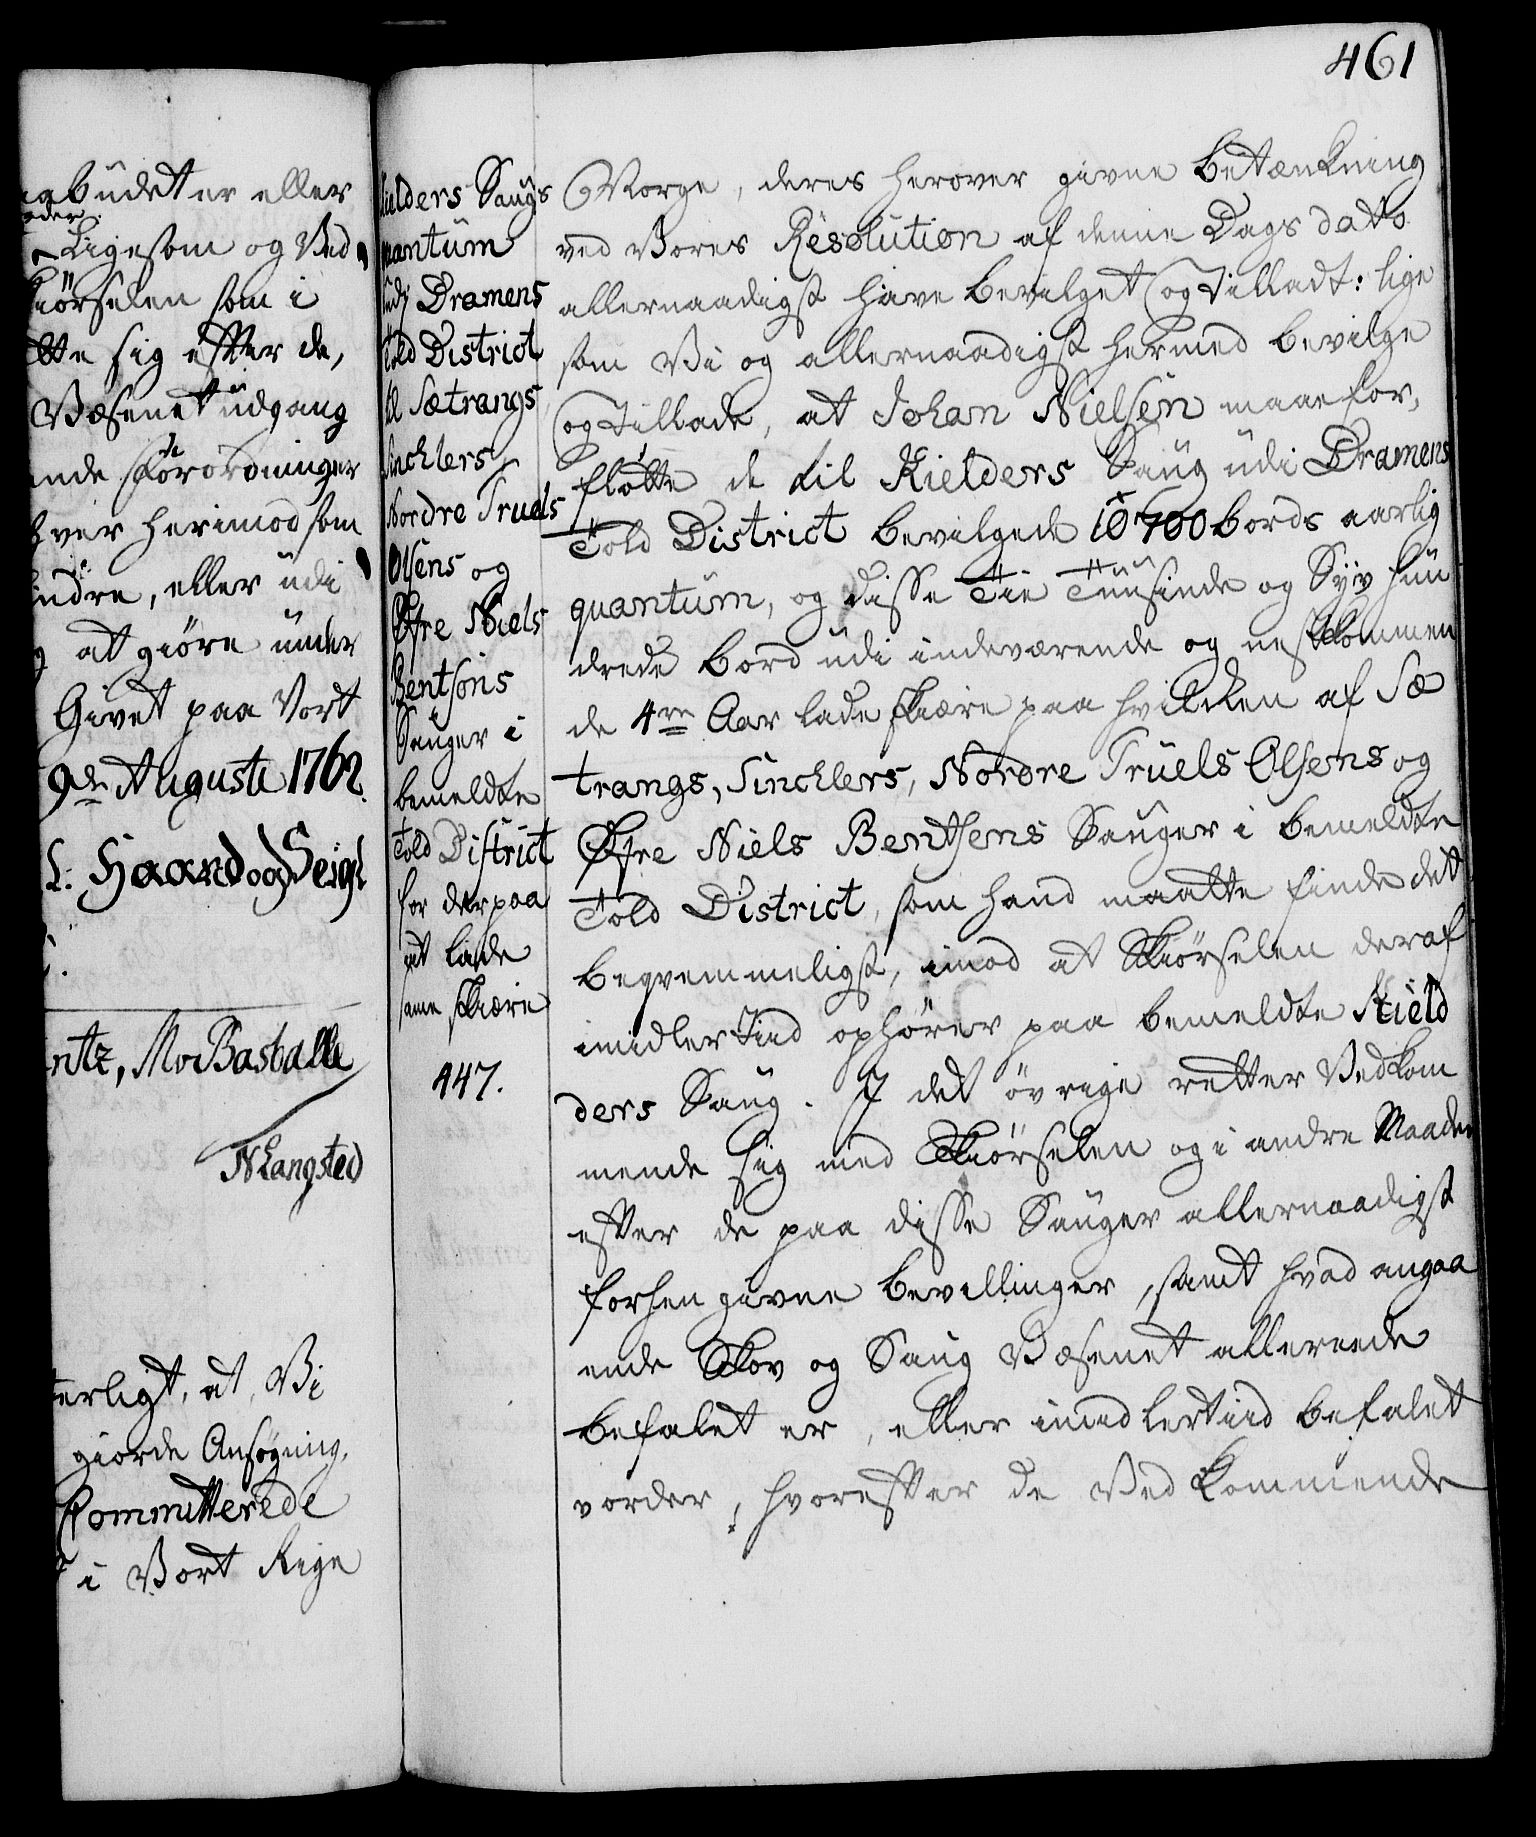 461
budet er eller
Ligesom og Ved
kiörselen som i
sig efter de,
Væsenet udgang
ende Forordninger
hver herimod som
indre, eller udi
at giöre under
Givet paa Vort
9de Augusti 1762.
L: Haand og Seigl
ntz, Mo Basballe
N Langsted
terligt, at Vi
giorde Ansøgning,
Committerede
i Vort Rige
Kielders Saugs
quantum
udj Dramens
Told District
til Sætrangs,
Sincklers,
Nordre Truels
Olsens og
Øfre Niels
Bentsons
Sauger i
bemeldte
Told District
for derpaa
at lade
same skiære
447.
Norge, deres herover givne betænkning
ved Vores Resolution af denne Dags dato
allernaadigst have bevilget og tilladt: lige
som Vi og allernaadigst hermed bevilge
og tillade, at Johan Nielsen maae for,
flötte de til Kielders Saug udi Dramens
Told District bevilgede 10700 bords aarlig
quantum, og disse Tie Tuusinde og Syv huu
drede bord udi indeværende og nestkommen
de 4re Aar lade skiære paa hvilcken af Sæ
trangs, Sincklers, Nordre Truels Olsens og
Øfre Niels Bentsens Sauger i bemeldte
Told District, som hand maatte finde det
beqvemmeligst, imod at Skiörselen deraf
imidlertiid ophörer paa bemeldte Kield
ders Saug. I det övrige retter Vedkom
mende sig med Skiörselen og i andre Maader
efter de paa disse Sauger allernaadigst
forhen givne bevillinger, samt hvad angaa
ende Skov og Saug Væsenet allereede
befalet er, eller imidlertiid befalet
vorder, hvorefter de Vedkommende